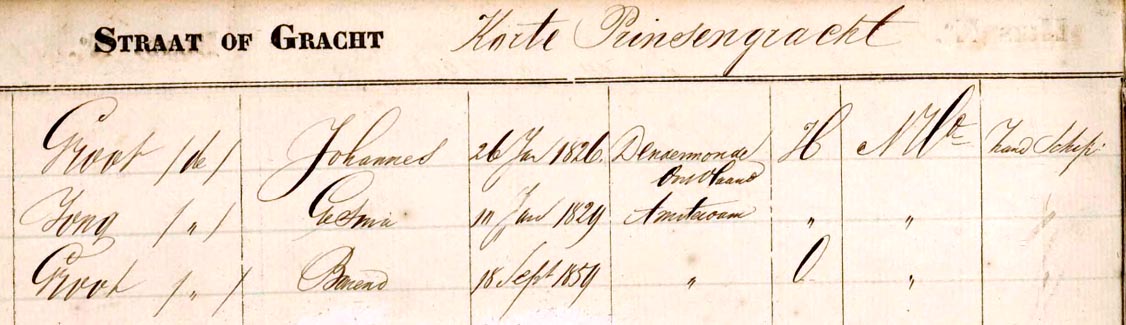 STRAAT OF GRACHT Korte Prinsengracht
Groot (de) Johannes 26 Jan 1826 Dendermonde H NH Zand Schip
Oost Vlaand
Jong („) 1829 Amsterdam „ „
Groot („) Barend 18 Sept 1859 „ O „